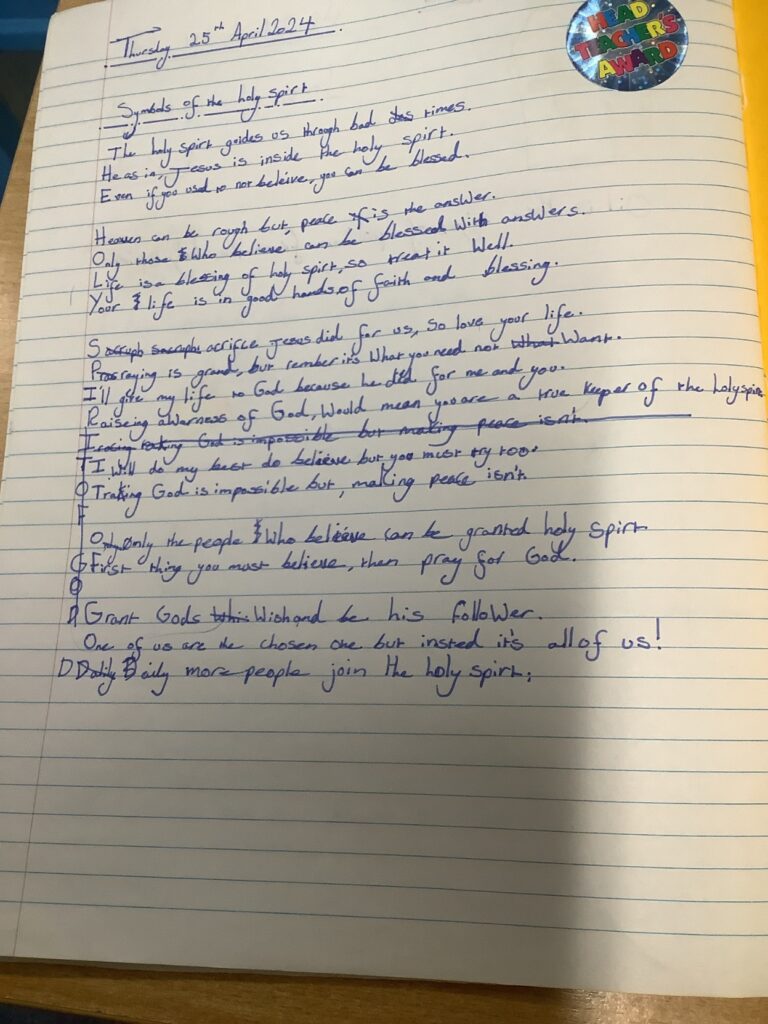 Thursday 25th April 2024
HEAD TEACHER'S AWARD
Symbols of the holy spirt
The holy spirt guides us through bad times.
He as in, Jesus is inside the holy spirt.
Even if you used to not beleive, you can be blessed.
Heaven can be rough but, peace is the answer.
Only those Who believe can be blessed With answers.
Life is a blessing of holy spirt, so treat it Well.
Your life is in good hands of faith and blessing.
Sacrifce Jesus did for us, so love your life.
Praying is grand, but rember it's What you need not Want.
I'll give my life to God because he did for me and you.
Raiseing awarness of God, Would mean you are a true keeper of the holy spirt
I will do my best do believe but you must try too.
Traking God is impossible but, making peace isn't
Only the people Who believe can be granted holy spirt
First thing you must believe, then pray for God.
Grant Gods Wish and be his follower.
One of us are the chosen one but insted it's all of us!
Daily more people join the holy spirt;